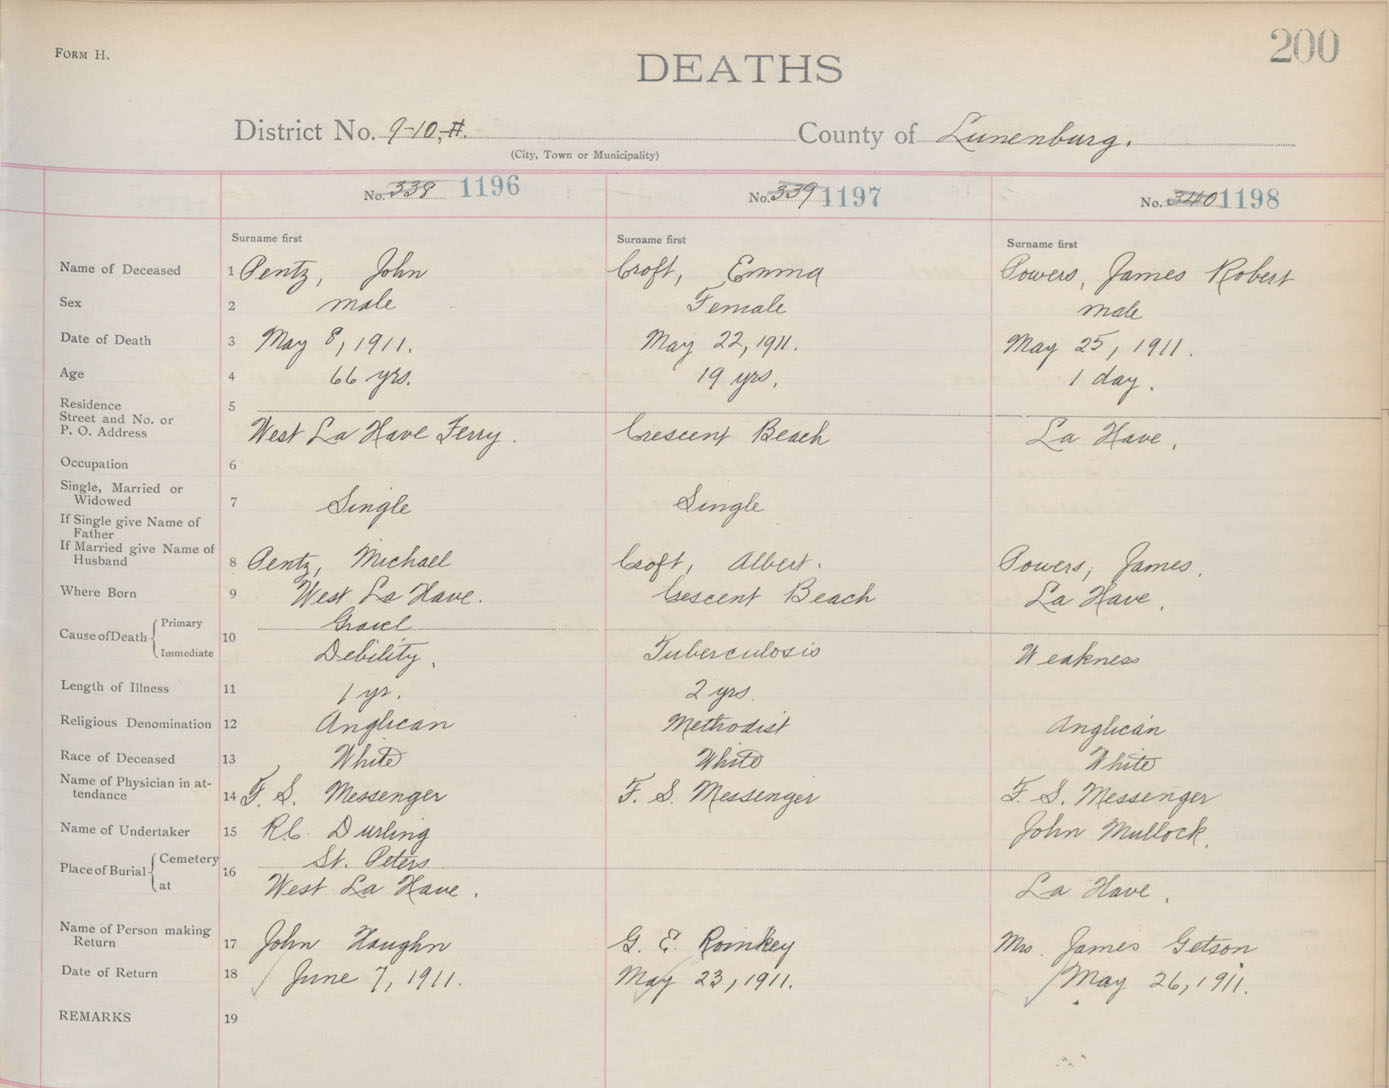 FORM H.
DEATHS
200
District No. 9-10, #. County of Lunenburg.
(City, Town or Municipality)
No. 338 1196 No. 339 1197 No. 340 1198
Surname first Surname first Surname first
Name of Deceased 1 Pentz, John Croft, Emma Powers, James Robert
Sex 2 male Female male
Date of Death 3 May 8, 1911. May 22, 1911. May 25, 1911.
Age 4 66 yrs. 19 yrs, 1 day.
Residence 5
Street and No. or
P. O. Address West La Have Ferry. Crescent Beach La Have.
Occupation 6
Single, Married or
Widowed 7 Single Single
If Single give Name of
Father
If Married give Name of
Husband 8 Pentz, Michael Croft, Albert. Powers, James.
Where Born 9 West La Have. Crescent Beach La Have.
Cause of Death { Primary 10 Gravel
Immediate Debility. Tuberculosis Weakness
Length of Illness 11 1 yr. 2 yrs
Religious Denomination 12 Anglican Methodist Anglican
Race of Deceased 13 White White White
Name of Physician in at-
tendance 14 F. S. Messenger F. S. Messenger F. S. Messenger
Name of Undertaker 15 R.C. Durling John Mullock.
Place of Burial { Cemetery 16 St. Peters
at West La Have. La Have.
Name of Person making
Return 17 John Haughn G. E. Romkey Mrs. James Getson
Date of Return 18 June 7, 1911. May 23, 1911. May 26, 1911.
REMARKS 19